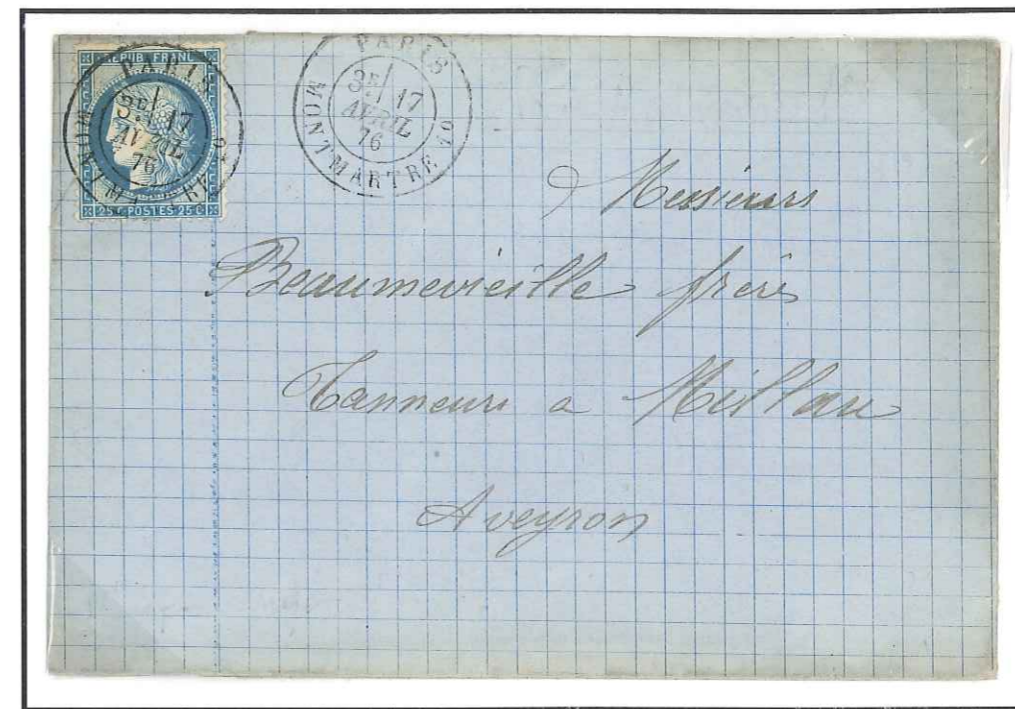 REPUB. FRANC
25 C POSTES 25 C
PARIS
3E 17
AVRIL
76
MONTMARTRE
PARIS
3E 17
AVRIL
76
MONTMARTRE
Messieurs
Beaumevieille frères
Tanneurs a Millau
Aveyron